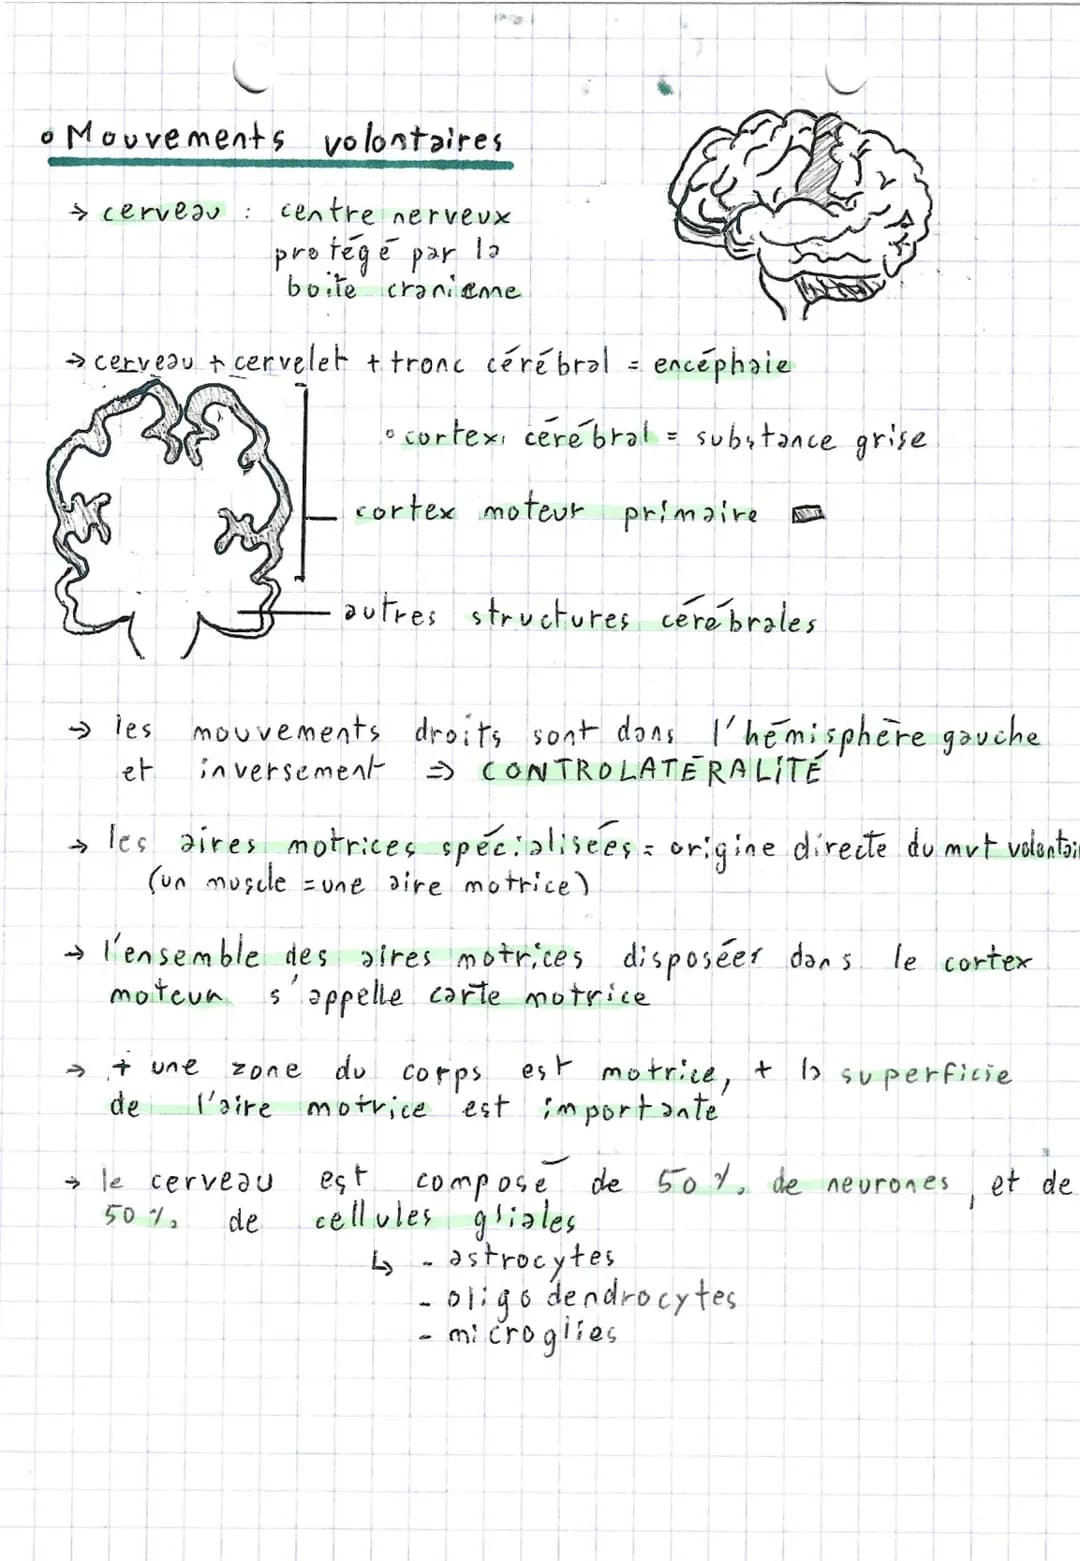 • Mouvements volontaires
→ cerveau : centre nerveux
protégé par la
boite cranienne
→ cerveau + cervelet + tronc cérébral = encéphale
• cortex cérébral = substance grise
cortex moteur primaire
autres structures cérébrales
→ les mouvements droits sont dans l'hémisphère gauche
et inversement ⇒ CONTROLATÉRALITÉ
→ les aires motrices spécialisées = origine directe du mvt volontai
(un muscle = une aire motrice)
→ l'ensemble des aires motrices disposéer dans le cortex
moteur s'appelle carte motrice
→ + une zone du corps est motrice, + la superficie
de l'aire motrice est importante
→ le cerveau est composé de 50 % de neurones, et de
50 % de cellules gliales
↳ - astrocytes
- oligodendrocytes
- microglies